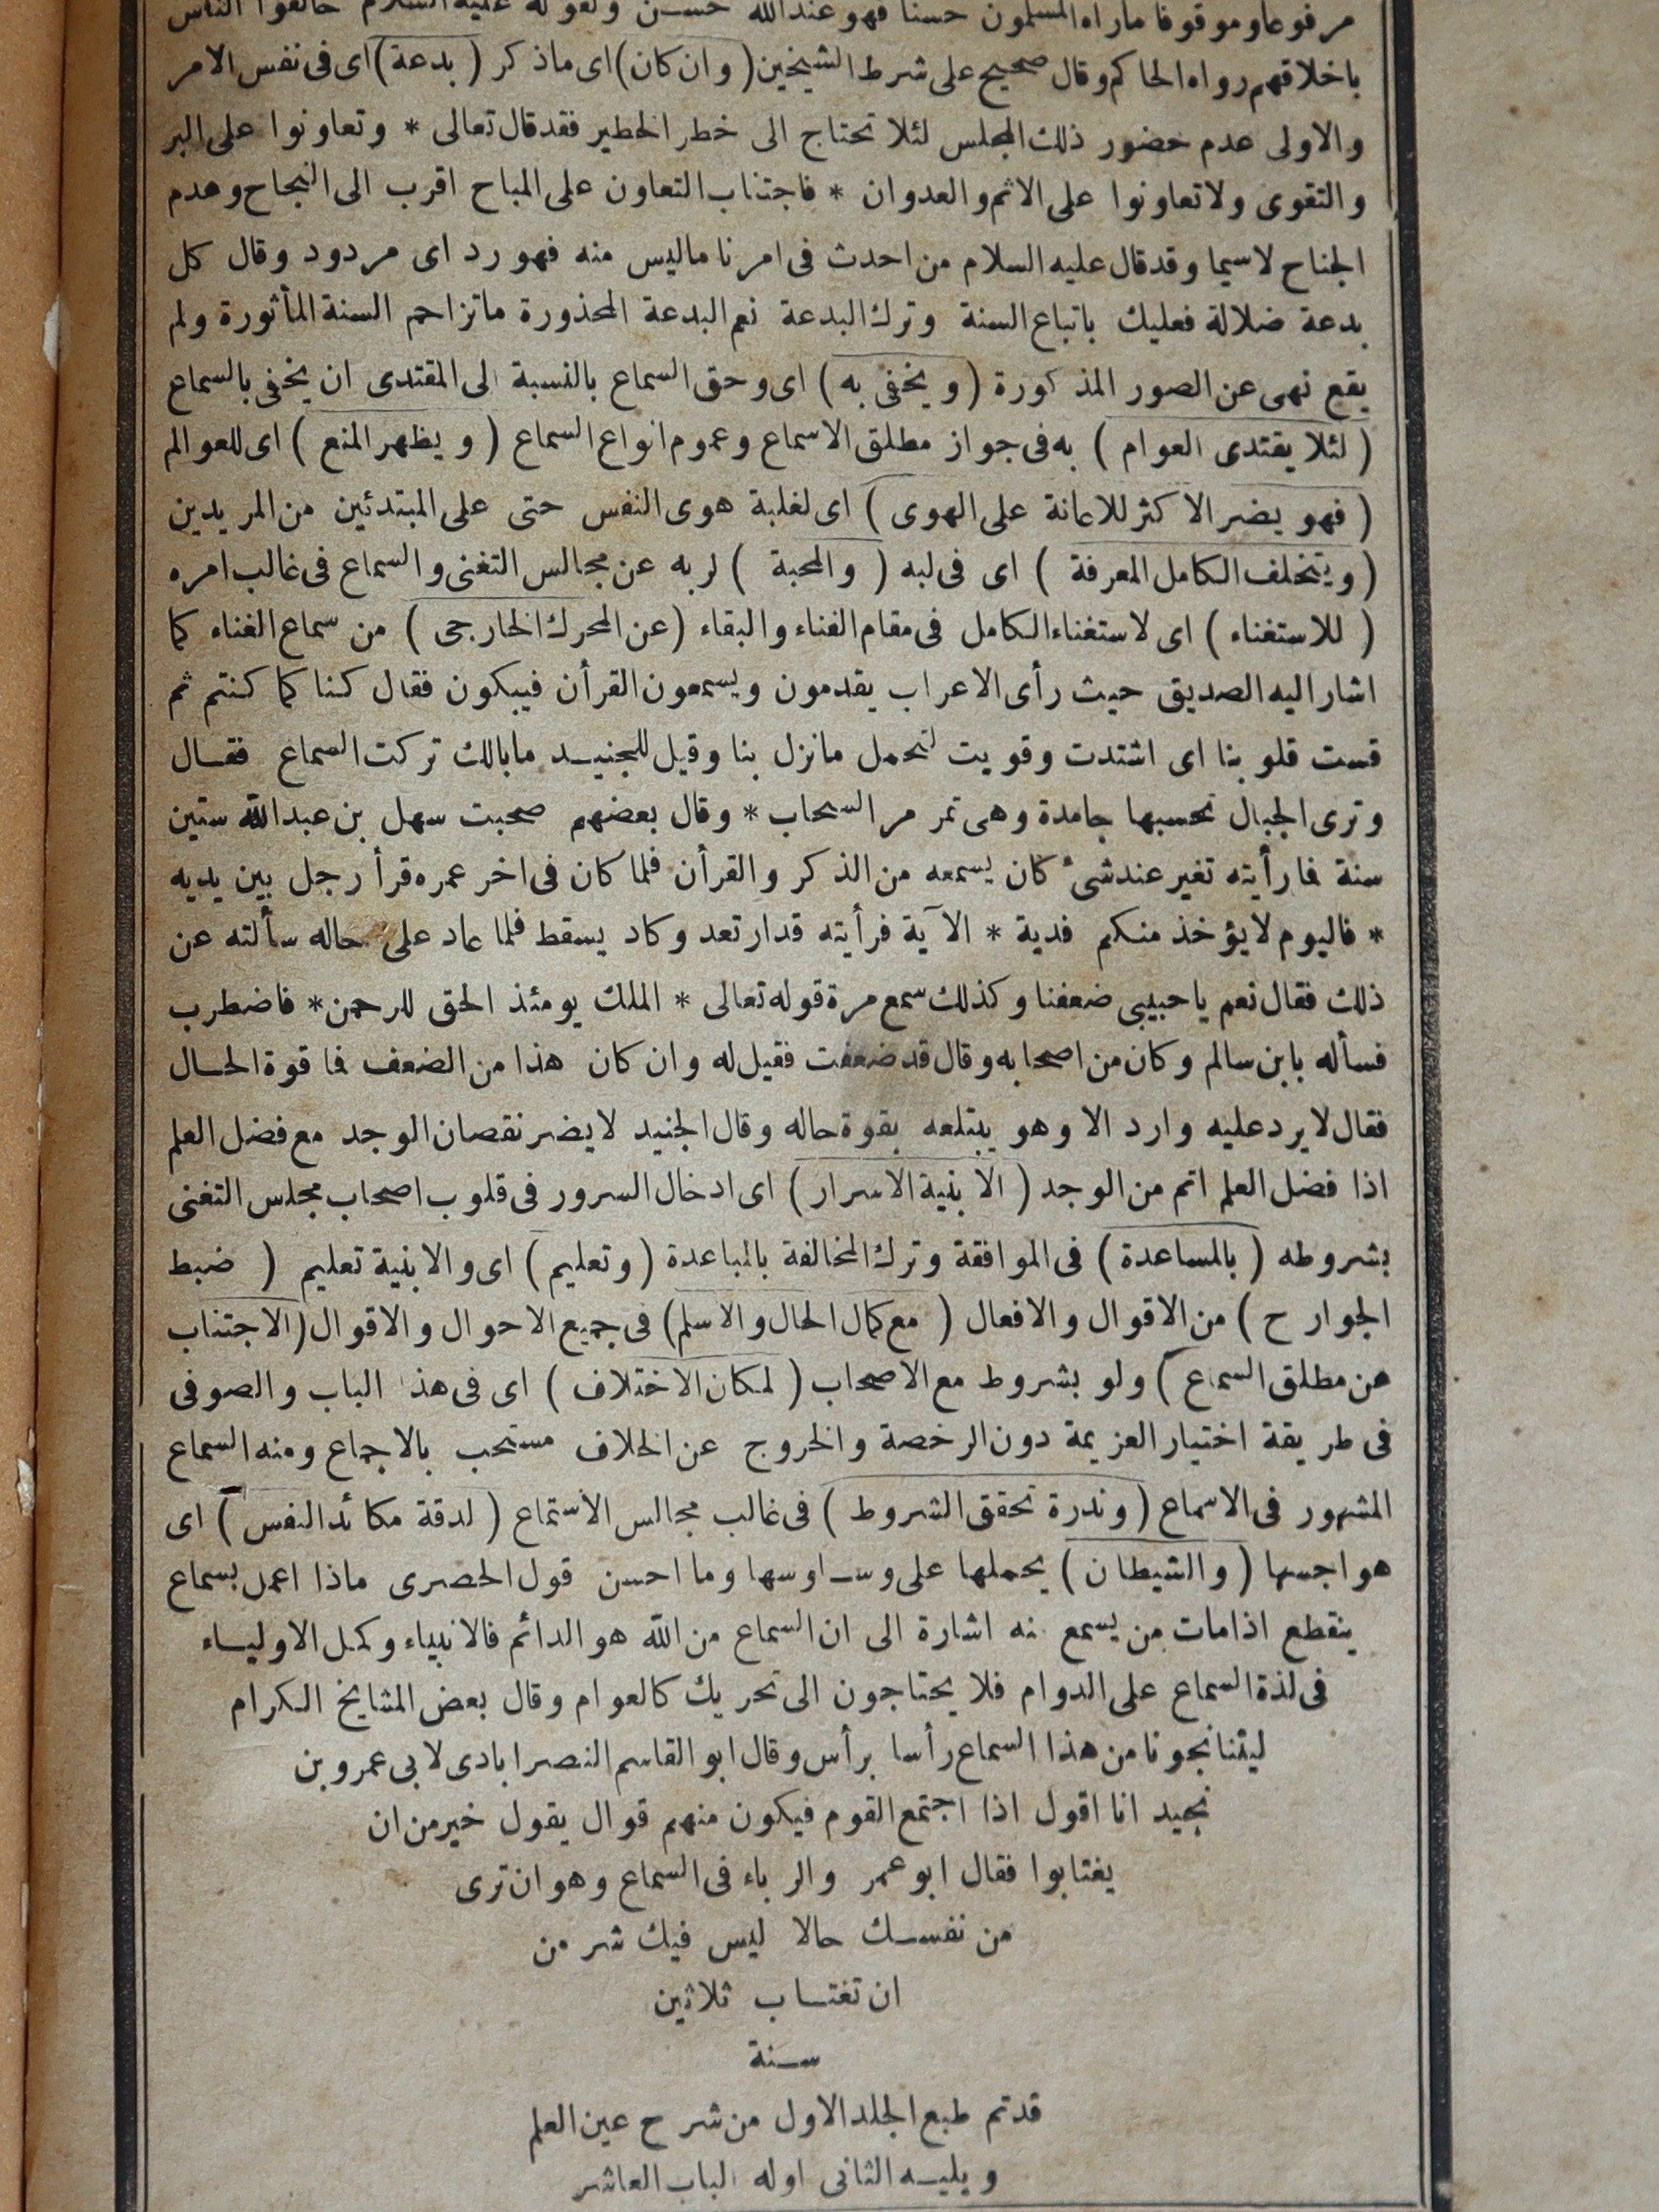 مرفوعا وموقوفا مارآه المسلمون حسنا فهو عندالله حسن ولقوله عليه السلام خالقوا الناس
باخلاقهم رواه الحاكم وقال صحيح على شرط الشيخين (وان كان) اى ماذكر (بدعة) اى فى نفس الامر
والاولى عدم حضور ذلك المجلس لئلا تحتاج الى خطر الخطير فقد قال تعالى * وتعاونوا على البر
والتقوى ولا تعاونوا على الاثم والعدوان * فاجتناب التعاون على المباح اقرب الى النجاح وعدم
الجناح لاسيما وقد قال عليه السلام من احدث فى امرنا ماليس منه فهو رد اى مردود وقال كل
بدعة ضلالة فعليك باتباع السنة وترك البدعة نعم البدعة المحذورة ماتزاحم السنة المأثورة ولم
يقع نهى عن الصور المذكورة (ويخفى به) اى وحق السماع بالنسبة الى المقتدى ان يخفى بالسماع
(لئلا يقتدى العوام) به فى جواز مطلق الاسماع وعموم انواع السماع (ويظهر المنع) اى للعوالم
(فهو يضر الاكثر للاعانة على الهوى) اى لغلبة هوى النفس حتى على المبتدئين من المريدين
(ويتخلف الكامل المعرفة) اى فى لبه (والمحبة) لربه عن مجالس التغنى والسماع فى غالب امره
(للاستغناء) اى لاستغناء الكامل فى مقام الفناء والبقاء (عن المحرك الخارجى) من سماع الغناء كما
اشار اليه الصديق حيث رأى الاعراب يقدمون ويسمعون القرأن فيبكون فقال كنا كما كنتم ثم
قست قلوبنا اى اشتدت وقويت لتحمل مانزل بنا وقيل للجنيد مابالك تركت السماع فقال
وترى الجبال تحسبها جامدة وهى تمر مر السحاب * وقال بعضهم صحبت سهل بن عبدالله ستين
سنة فما رأيته تغير عند شئ كان يسمعه من الذكر والقرأن فلما كان فى اخر عمره قرأ رجل بين يديه
* فاليوم لايؤخذ منكم فدية * الآية فرأيته قد ارتعد وكاد يسقط فلما عاد على حاله سألته عن
ذلك فقال نعم ياحبيبى ضعفنا وكذلك سمع مرة قوله تعالى * الملك يومئذ الحق للرحمن * فاضطرب
فسأله بابن سالم وكان من اصحابه وقال قد ضعفت فقيل له وان كان هذا من الضعف فما قوة الحال
فقال لايرد عليه وارد الا وهو يبتلعه بقوة حاله وقال الجنيد لايضر نقصان الوجد مع فضل العلم
اذا فضل العلم اتم من الوجد (الا بنية الاسرار) اى ادخال السرور فى قلوب اصحاب مجلس التغنى
بشروطه (بالمساعدة) فى الموافقة وترك المخالفة بالمباعدة (وتعليم) اى والا بنية تعليم (ضبط
الجوارح) من الاقوال والافعال (مع كمال الحال والاسلم) فى جميع الاحوال والاقوال (الاجتناب
عن مطلق السماع) ولو بشروط مع الاصحاب (لمكان الاختلاف) اى فى هذا الباب والصوفى
فى طريقة اختيار العزيمة دون الرخصة والخروج عن الخلاف مستحب بالاجماع ومنه السماع
المشهور فى الاسماع (وندرة تحقق الشروط) فى غالب مجالس الاستماع (لدقة مكائد النفس) اى
هواجسها (والشيطان) يحملها على وساوسها وما احسن قول الحصرى ماذا اعمل بسماع
ينقطع اذا مات من يسمع منه اشارة الى ان السماع من الله هو الدائم فالانبياء وكمل الاولياء
فى لذة السماع على الدوام فلا يحتاجون الى تحريك كالعوام وقال بعض المشايخ الكرام
ليتنا نجونا من هذا السماع رأسا برأس وقال ابو القاسم النصرابادى لابى عمرو بن
نجيد انا اقول اذا اجتمع القوم فيكون منهم قوال يقول خير من ان
يغتابوا فقال ابو عمر والرياء فى السماع وهو ان ترى
من نفسك حالا ليس فيك شر من
ان تغتاب ثلاثين
سنة
قدتم طبع الجلد الاول من شرح عين العلم
ويليه الثانى اوله الباب العاشر